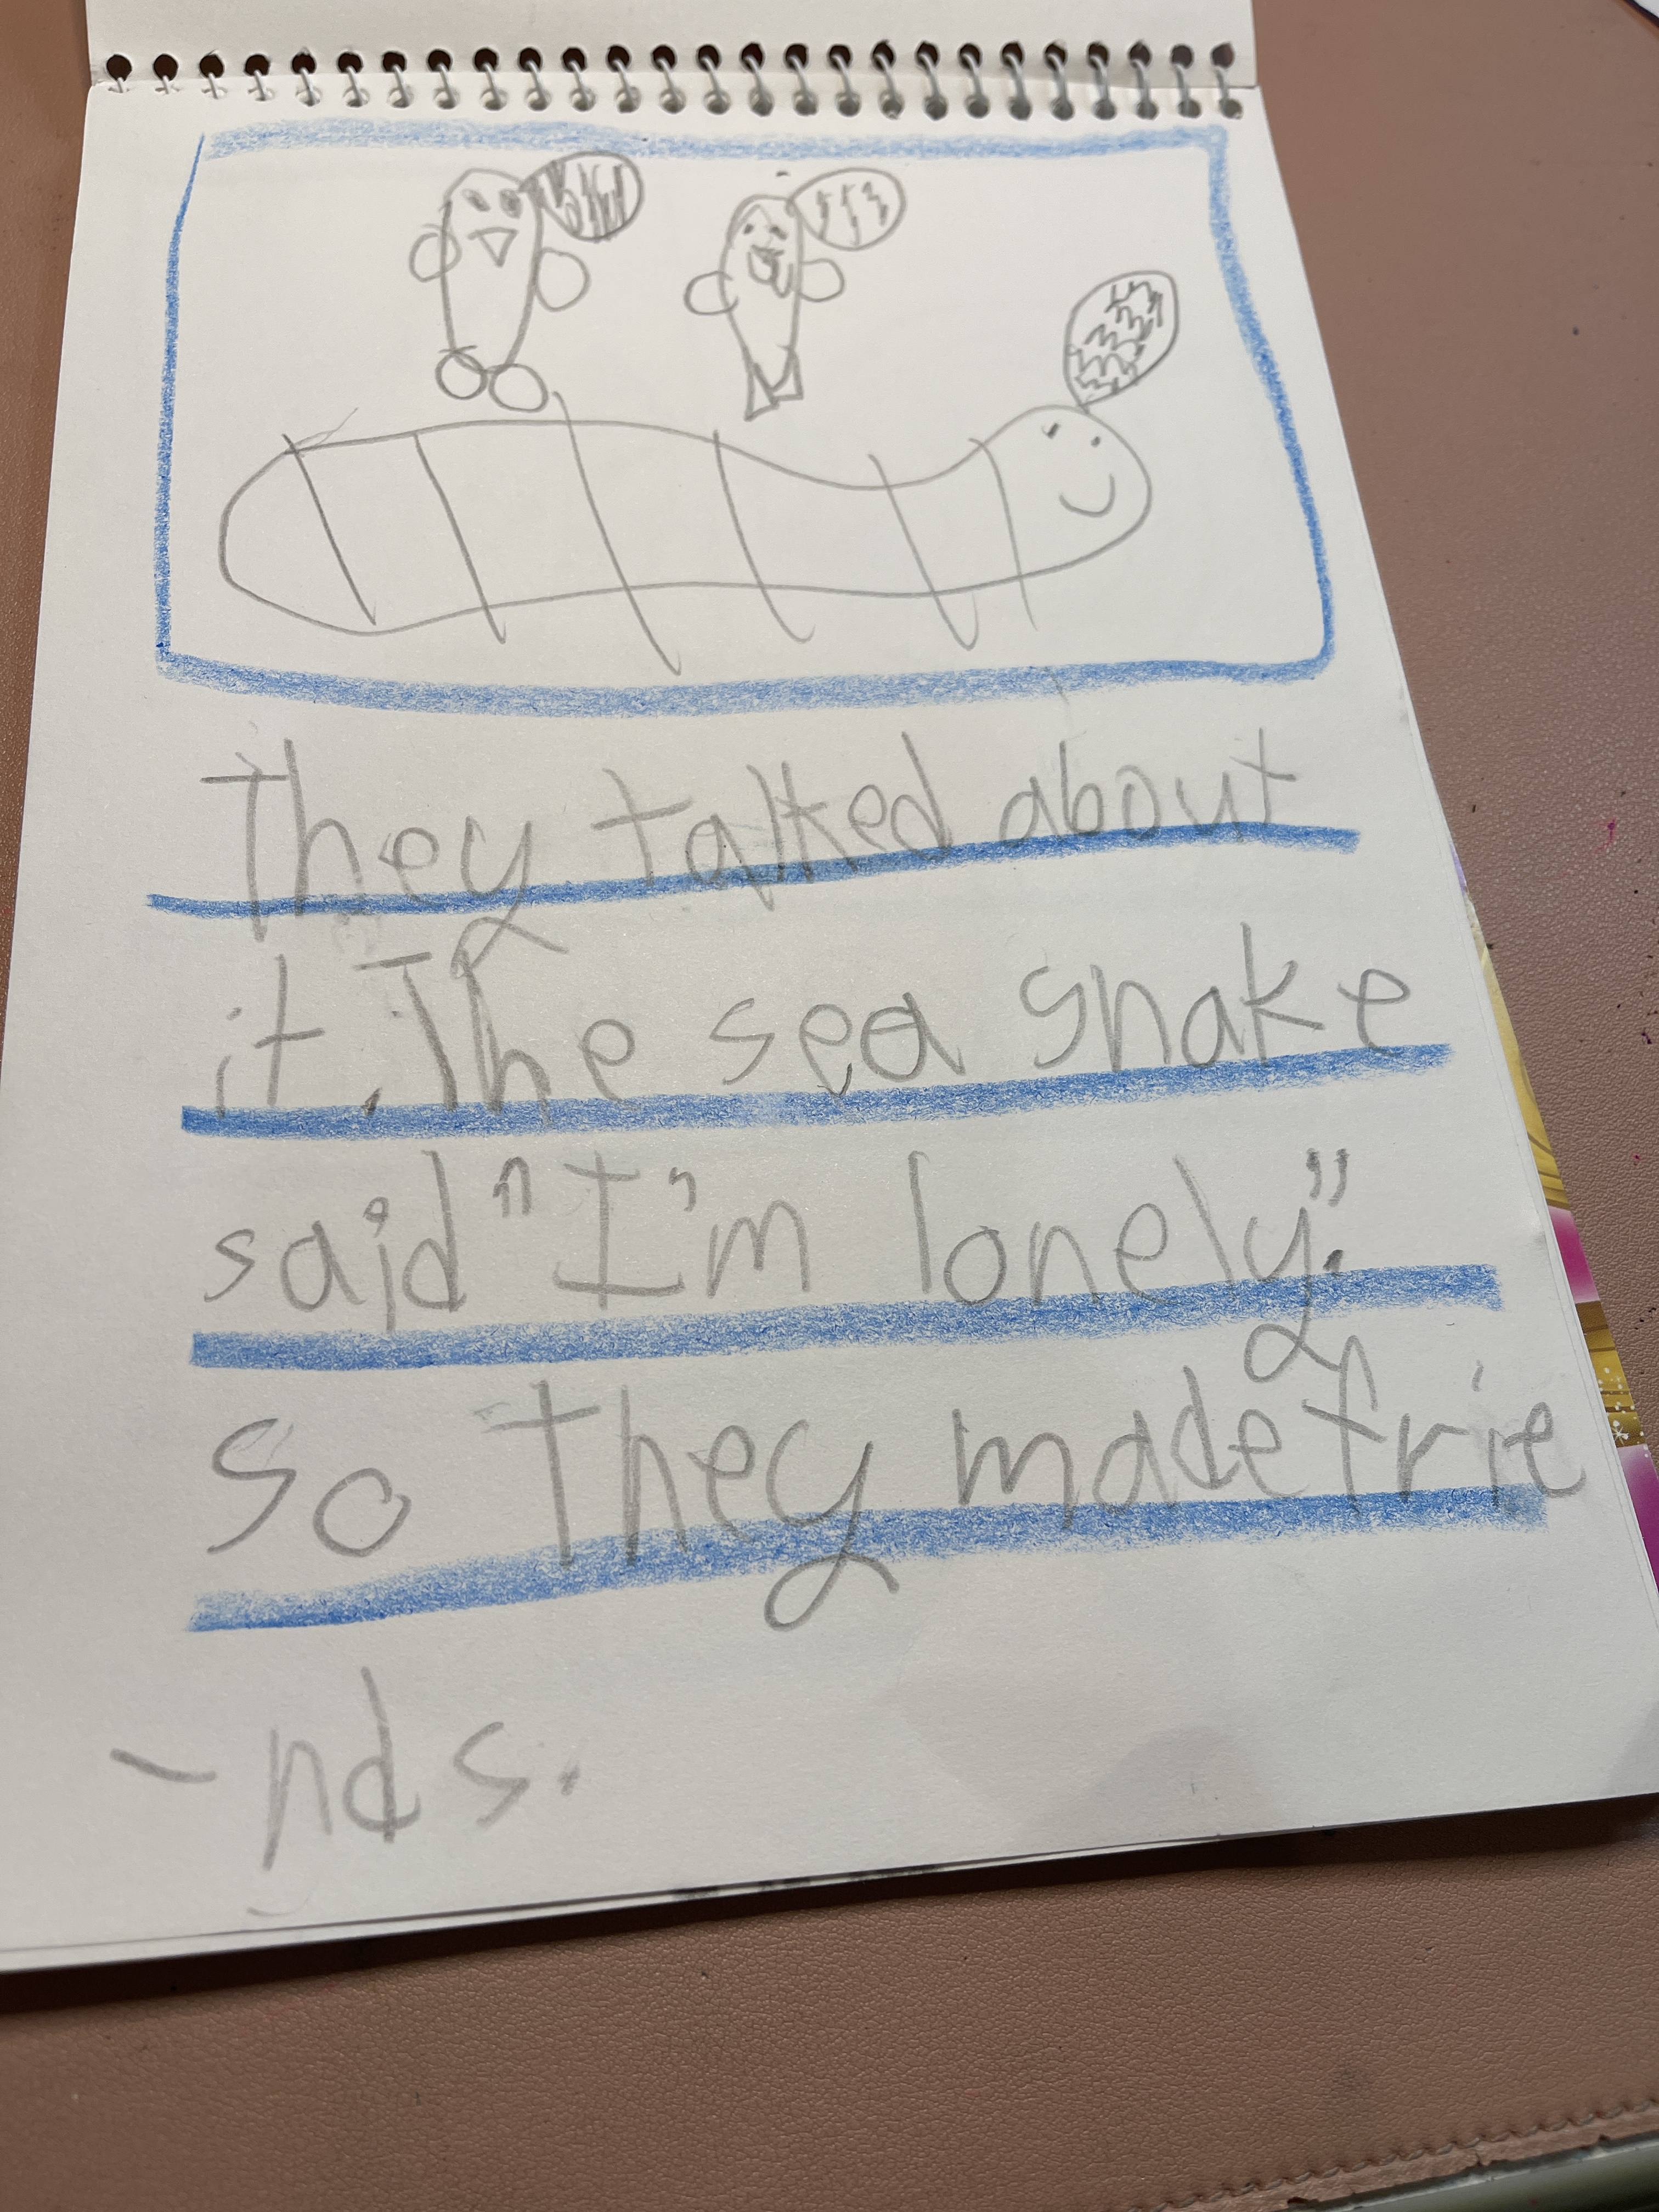 They talked about
it. The sea snake
said "I'm lonely."
so They made frie
-nds.